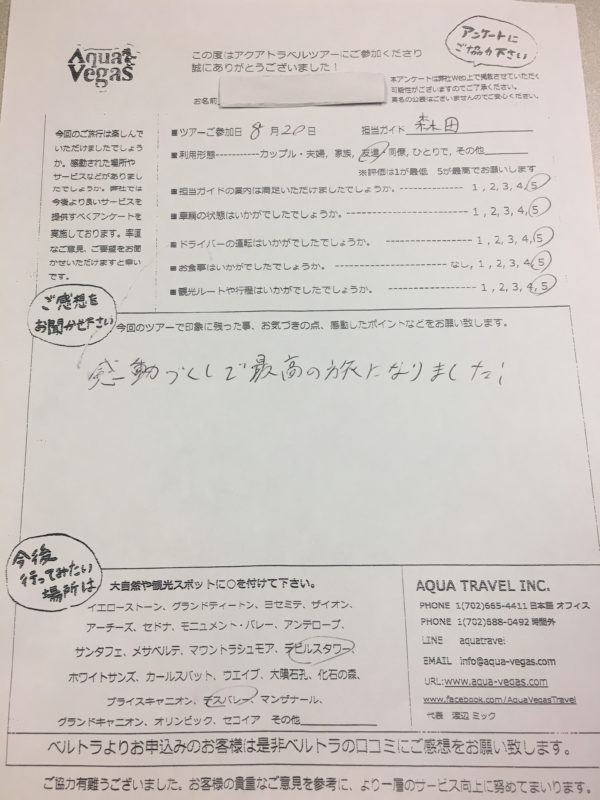 Aqua Vegas
この度はアクアトラベルツアーにご参加くださり
誠にありがとうございました！
アンケートに
ご協力下さい
本アンケートは弊社Web上で掲載させていただく
可能性がございますのでご了承ください。
実名の公表はございませんのでご安心ください。
お名前
今回のご旅行は楽しんで
いただけましたでしょう
か。感動された場所や
サービスなどがありまし
たでしょうか。弊社では
今後より良いサービスを
提供すべくアンケートを
実施しております。率直
なご意見、ご要望をお聞
かせいただけますと幸い
です。
■ツアーご参加日 8月20日 担当ガイド 森田
■利用形態------------カップル・夫婦, 家族, 友達・同僚, ひとりで, その他
※評価は1が最低 5が最高でお願いします
■担当ガイドの案内は満足いただけましたでしょうか。 ------------ 1, 2, 3, 4, 5
■車輌の状態はいかがでしたでしょうか。 ------------ 1, 2, 3, 4, 5
■ドライバーの運転はいかがでしたでしょうか。 ------------ 1, 2, 3, 4, 5
■お食事はいかがでしたでしょうか。 ------------ なし, 1, 2, 3, 4, 5
■観光ルートや行程はいかがでしたでしょうか。 ------------ 1, 2, 3, 4, 5
ご感想を
お聞かせ下さい
今回のツアーで印象に残った事、お気づきの点、感動したポイントなどをお願い致します。
感動づくしで最高の旅になりました！
今後
行ってみたい
場所は
大自然や観光スポットに○を付けて下さい。
イエローストーン、グランドティートン、ヨセミテ、ザイオン、
アーチーズ、セドナ、モニュメント・バレー、アンテロープ、
サンタフェ、メサベルデ、マウントラシュモア、デビルスタワー、
ホワイトサンズ、カールスバット、ウエイブ、大隕石孔、化石の森、
ブライスキャニオン、デスバレー、マンザナール、
グランドキャニオン、オリンピック、セコイア その他
AQUA TRAVEL INC.
PHONE 1(702)665-4411 日本語 オフィス
PHONE 1(702)688-0492 時間外
LINE aquatravel
EMAIL info@aqua-vegas.com
URL:www.aqua-vegas.com
www.facebook.com/AquaVegasTravel
代表 渡辺 ミック
ベルトラよりお申込みのお客様は是非ベルトラの口コミにご感想をお願い致します。
ご協力有難うございました。お客様の貴重なご意見を参考に、より一層のサービス向上に努めてまいります。